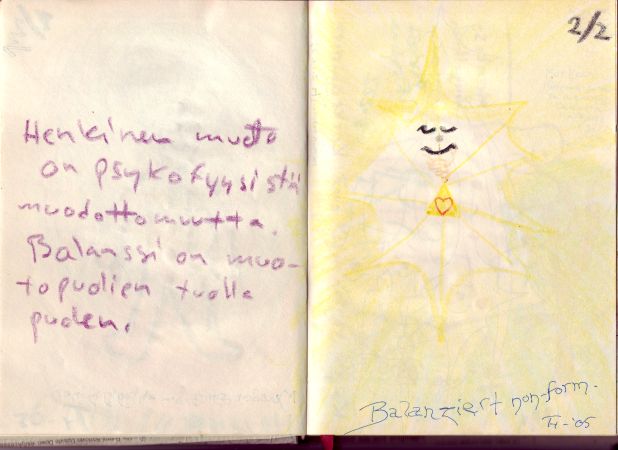 Henkinen muoto
on psykofyysistä
muodottomuutta.
Balanssi on muo-
topuolien tuolla
puolen.
2/2
Balanziert non-form.
TH -05